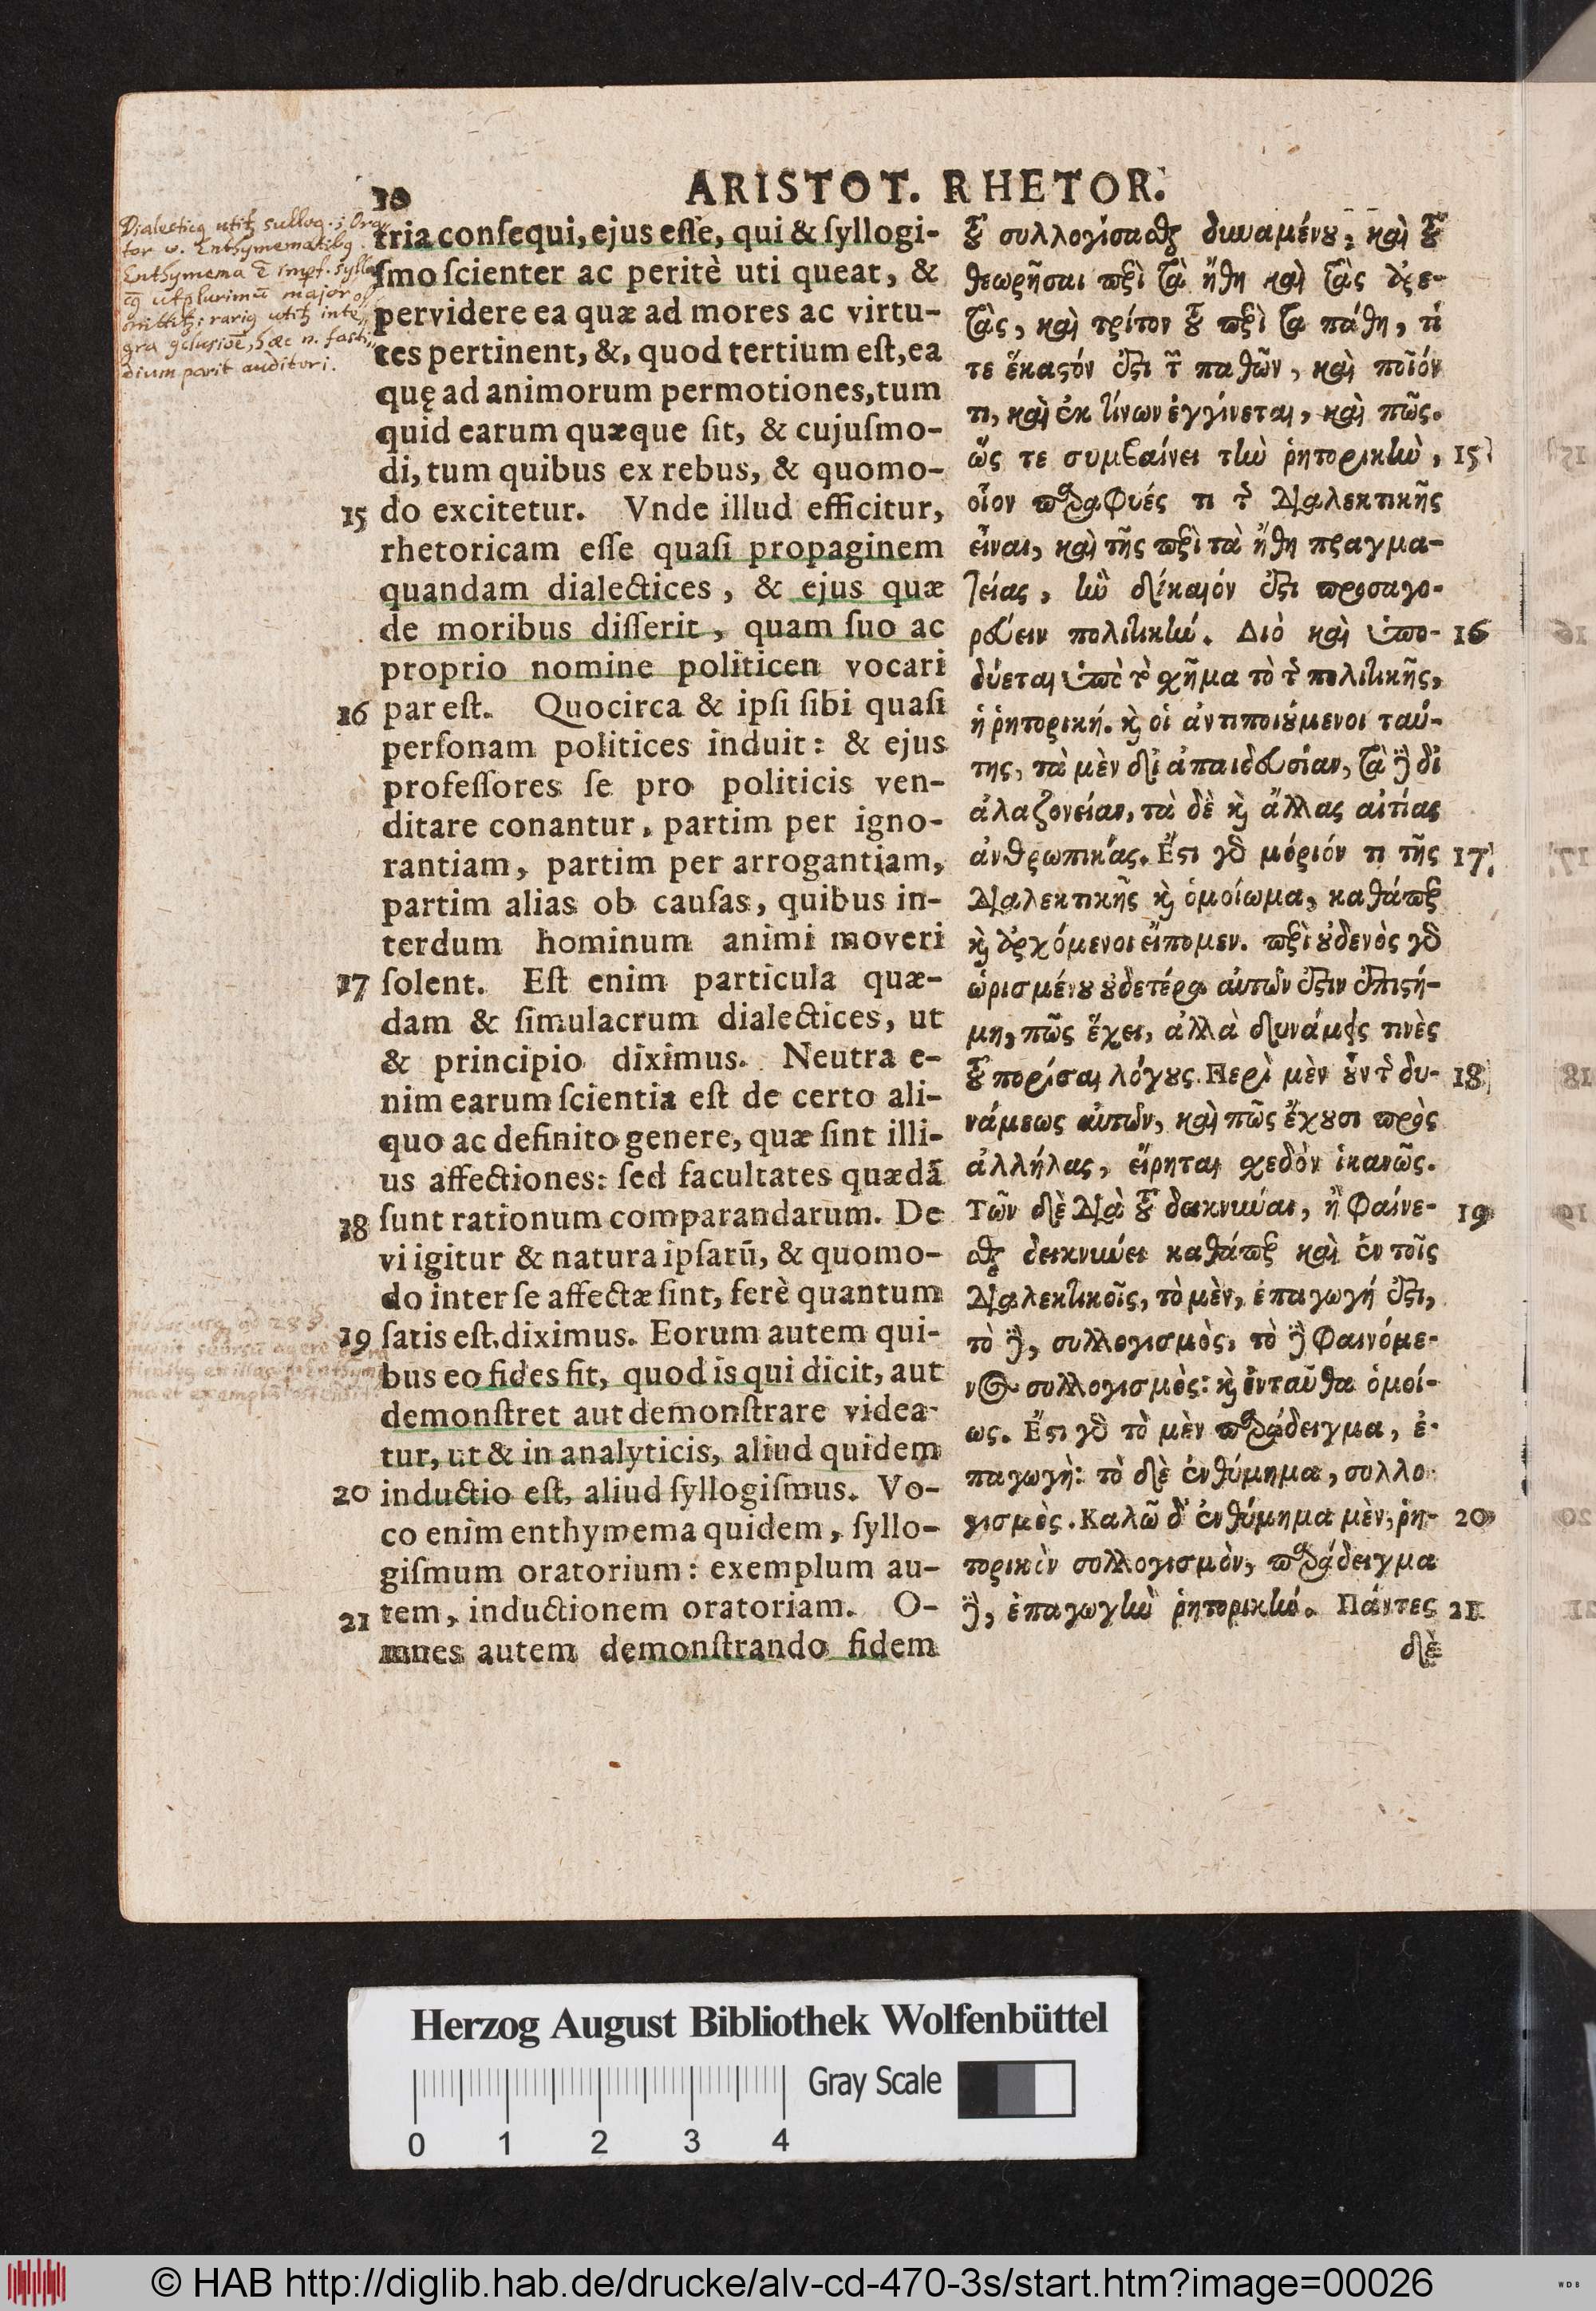 10
ARISTOT. RHETOR.
Dialecticq utitꝫ sullog.; Ora-
tor v. Enthymematibq.
Enthymema ē impf. syllog.
majorꝫ
dium parit auditori.
tria conſequi, ejus eſſe, qui & ſyllogi-
ſmo ſcienter ac peritè uti queat, &
pervidere ea quæ ad mores ac virtu-
tes pertinent, &, quod tertium eſt, ea
quę ad animorum permotiones, tum
quid earum quæque ſit, & cujuſmo-
di, tum quibus ex rebus, & quomo-
15 do excitetur. Vnde illud efficitur,
rhetoricam eſſe quaſi propaginem
quandam dialectices, & ejus quæ
de moribus diſſerit, quam ſuo ac
proprio nomine politicen vocari
16 par eſt. Quocirca & ipſi ſibi quaſi
perſonam politices induit: & ejus
profeſſores ſe pro politicis ven-
ditare conantur, partim per igno-
rantiam, partim per arrogantiam,
partim alias ob cauſas, quibus in-
terdum hominum animi moveri
17 ſolent. Eſt enim particula quæ-
dam & ſimulacrum dialectices, ut
& principio diximus. Neutra e-
nim earum ſcientia eſt de certo ali-
quo ac definito genere, quæ ſint illi-
us affectiones: ſed facultates quædā
18 ſunt rationum comparandarum. De
vi igitur & natura ipſarū, & quomo-
do inter ſe affectæ ſint, ferè quantum
19 ſatis eſt, diximus. Eorum autem qui-
bus eo fides fit, quod is qui dicit, aut
demonſtret aut demonſtrare videa-
tur, ut & in analyticis, aliud quidem
20 inductio eſt, aliud ſyllogiſmus. Vo-
co enim enthymema quidem, ſyllo-
giſmum oratorium: exemplum au-
21 tem, inductionem oratoriam. O-
mnes autem demonſtrando fidem
τοῦ συλλογίσασθαι δυναμένου, καὶ τοῦ
θεωρῆσαι περὶ τὰ ἤθη καὶ τὰς ἀρε-
τὰς, καὶ τρίτον τοῦ περὶ τὰ πάθη, τί
τε ἕκαστόν ἐστι τῶν παθῶν, καὶ ποῖόν
τι, καὶ ἐκ τίνων ἐγγίνεται, καὶ πῶς.
ὥς τε συμβαίνει τὴν ῥητορικὴν, 15
οἷον παραφυές τι τῆς διαλεκτικῆς
εἶναι, καὶ τῆς περὶ τὰ ἤθη πραγμα-
τείας, ἣν δίκαιόν ἐστι προσαγο-
ρεύειν πολιτικήν. Διὸ καὶ ὑπο- 16
δύεται ὑπὸ τὸ σχῆμα τὸ τῆς πολιτικῆς,
ἡ ῥητορική. καὶ οἱ ἀντιποιούμενοι ταύ-
της, τὰ μὲν δι' ἀπαιδευσίαν, τὰ δὲ δι'
ἀλαζονείαν, τὰ δὲ καὶ ἄλλας αἰτίας
ἀνθρωπικάς. Ἔστι γὰρ μόριόν τι τῆς 17
διαλεκτικῆς καὶ ὁμοίωμα, καθάπερ
καὶ ἀρχόμενοι εἴπομεν. περὶ οὐδενὸς γὰρ
ὡρισμένου οὐδετέρα αὐτῶν ἐστιν ἐπιστή-
μη, πῶς ἔχει, ἀλλὰ δυνάμεις τινὲς
τοῦ πορίσαι λόγους. Περὶ μὲν οὖν τῆς δυ- 18
νάμεως αὐτῶν, καὶ πῶς ἔχουσι πρὸς
ἀλλήλας, εἴρηται σχεδὸν ἱκανῶς.
Τῶν δὲ διὰ τοῦ δεικνύναι, ἢ φαίνε- 19
σθαι δεικνύναι καθάπερ καὶ ἐν τοῖς
διαλεκτικοῖς, τὸ μὲν, ἐπαγωγή ἐστι,
τὸ δὲ, συλλογισμὸς, τὸ δὲ φαινόμε-
νος συλλογισμὸς: καὶ ἐνταῦθα ὁμοί-
ως. Ἔστι γὰρ τὸ μὲν παράδειγμα, ἐ-
παγωγὴ: τὸ δὲ ἐνθύμημα, συλλο-
γισμὸς. Καλῶ δ' ἐνθύμημα μὲν, ῥη- 20
τορικὸν συλλογισμὸν, παράδειγμα
δὲ, ἐπαγωγὴν ῥητορικήν. Πάντες 21
δὲ
Herzog August Bibliothek Wolfenbüttel
Gray Scale
0 1 2 3 4
© HAB http://diglib.hab.de/drucke/alv-cd-470-3s/start.htm?image=00026
WDB